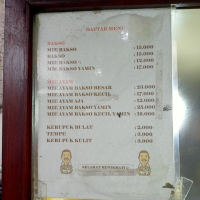 DAFTAR MENU
BAKSO
MIE BAKSO : 15.000
BAKSO : 15.000
MIE BAKSO : 12.000
MIE BAKSO YAMIN : 17.000
MIE AYAM
MIE AYAM BAKSO BESAR : 20.000
MIE AYAM BAKSO KECIL : 17.000
MIE AYAM AJA : 13.000
MIE AYAM BAKSO YAMIN : 25.000
MIE AYAM BAKSO KECIL YAMIN : 18.000
KERUPUK BULAT : 2.000
TEMPE : 2.000
KERUPUK KULIT : 3.000
SELAMAT MENIKMATI